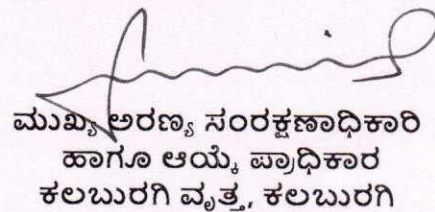 ಮುಖ್ಯ ಅರಣ್ಯ ಸಂರಕ್ಷಣಾಧಿಕಾರಿ
ಹಾಗೂ ಆಯ್ಕೆ ಪ್ರಾಧಿಕಾರ
ಕಲಬುರಗಿ ವೃತ್ತ, ಕಲಬುರಗಿ